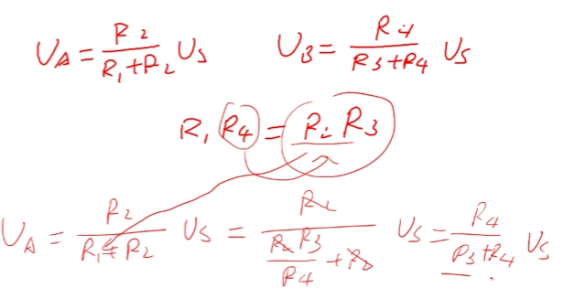 U_A = \frac{R_2}{R_1+R_2} U_S    U_B = \frac{R_4}{R_3+R_4} U_S
R_1 R_4 = R_2 R_3
U_A = \frac{R_2}{R_1+R_2} U_S = \frac{R_2}{\frac{R_2 R_3}{R_4}+R_2} U_S = \frac{R_4}{R_3+R_4} U_S